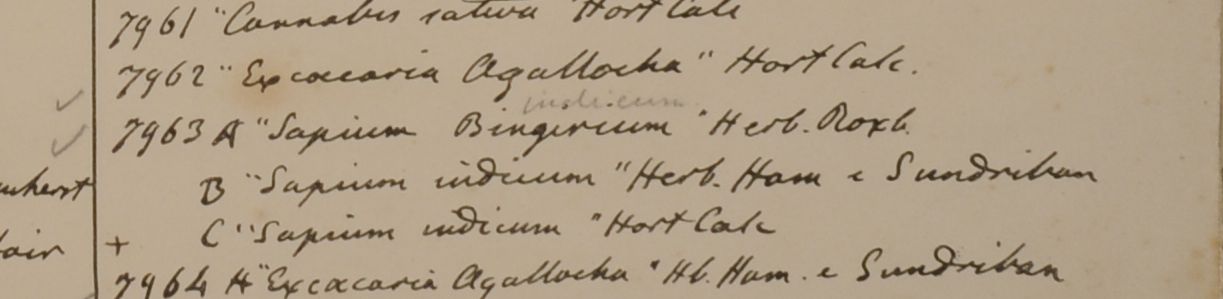 7961 "Cannabis sativa Hort Calc
7962 "Excaecaria Agallocha" Hort Calc.
indicum
7963 A "Sapium Bingerium "Herb. Roxb.
B "Sapium indicum "Herb. Ham e Sundriban
amherst
C "Sapium indicum "Hort Calc
+
7964 A "Excaecaria Agallocha "Hb. Ham. e Sundriban